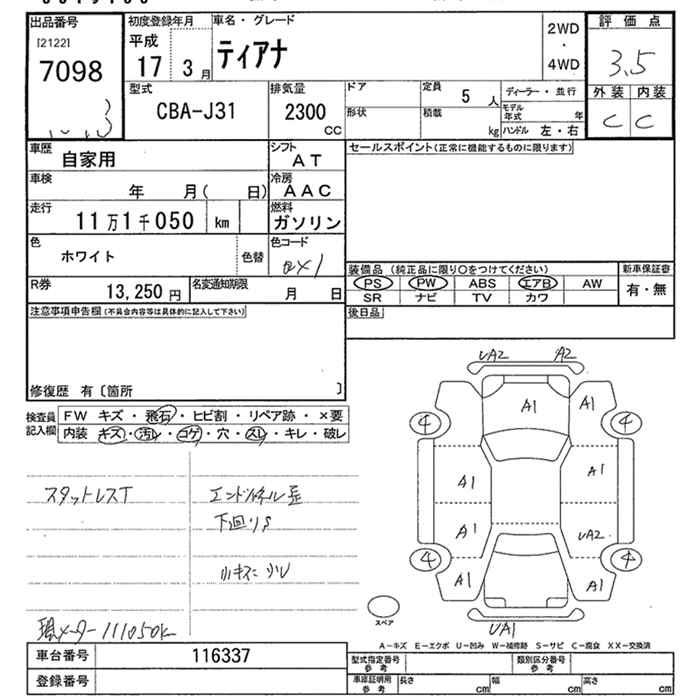 出品番号
[2122]
7098
初度登録年月
平成
17 3月
車名・グレード
ティアナ
2WD
・
4WD
評価点
3.5
外装 内装
C C
型式
CBA-J31
排気量
2300
CC
ドア
形状
定員
5 人
積載
kg
ディーラー・並行
モデル年式 年
ハンドル 左・右
車歴
自家用
シフト
AT
セールスポイント(正常に機能するものに限ります)
車検
年 月( 日)
冷房
AAC
走行
11万1千050 km
燃料
ガソリン
色
ホワイト
色替
色コード
QX1
R券
13,250円
名変通知期限
月 日
装備品(純正品に限り○をつけてください)
PS PW ABS エアB AW
SR ナビ TV カワ
新車保証書
有・無
後日品
注意事項申告欄(不具合内容等は具体的に記入して下さい)
修復歴 有〔箇所 〕
検査員記入欄
FW キズ・飛石・ヒビ割・リペア跡・×要
内装 キズ・汚レ・コゲ・穴・スレ・キレ・破レ
スタットレスT
下廻りS
小キズ
現メーター111050K
UA2 A2
A1 A1
4 4
A1 A1
A1 UA2
4 4
A1 A1
UA1
スペア
A-キズ E-エクボ U-凹み W-補修跡 S-サビ C-腐食 XX-交換済
車台番号
116337
登録番号
型式指定番号
参考
類別区分番号
参考
車庫証明用
参考
長さ cm
幅 cm
高さ cm